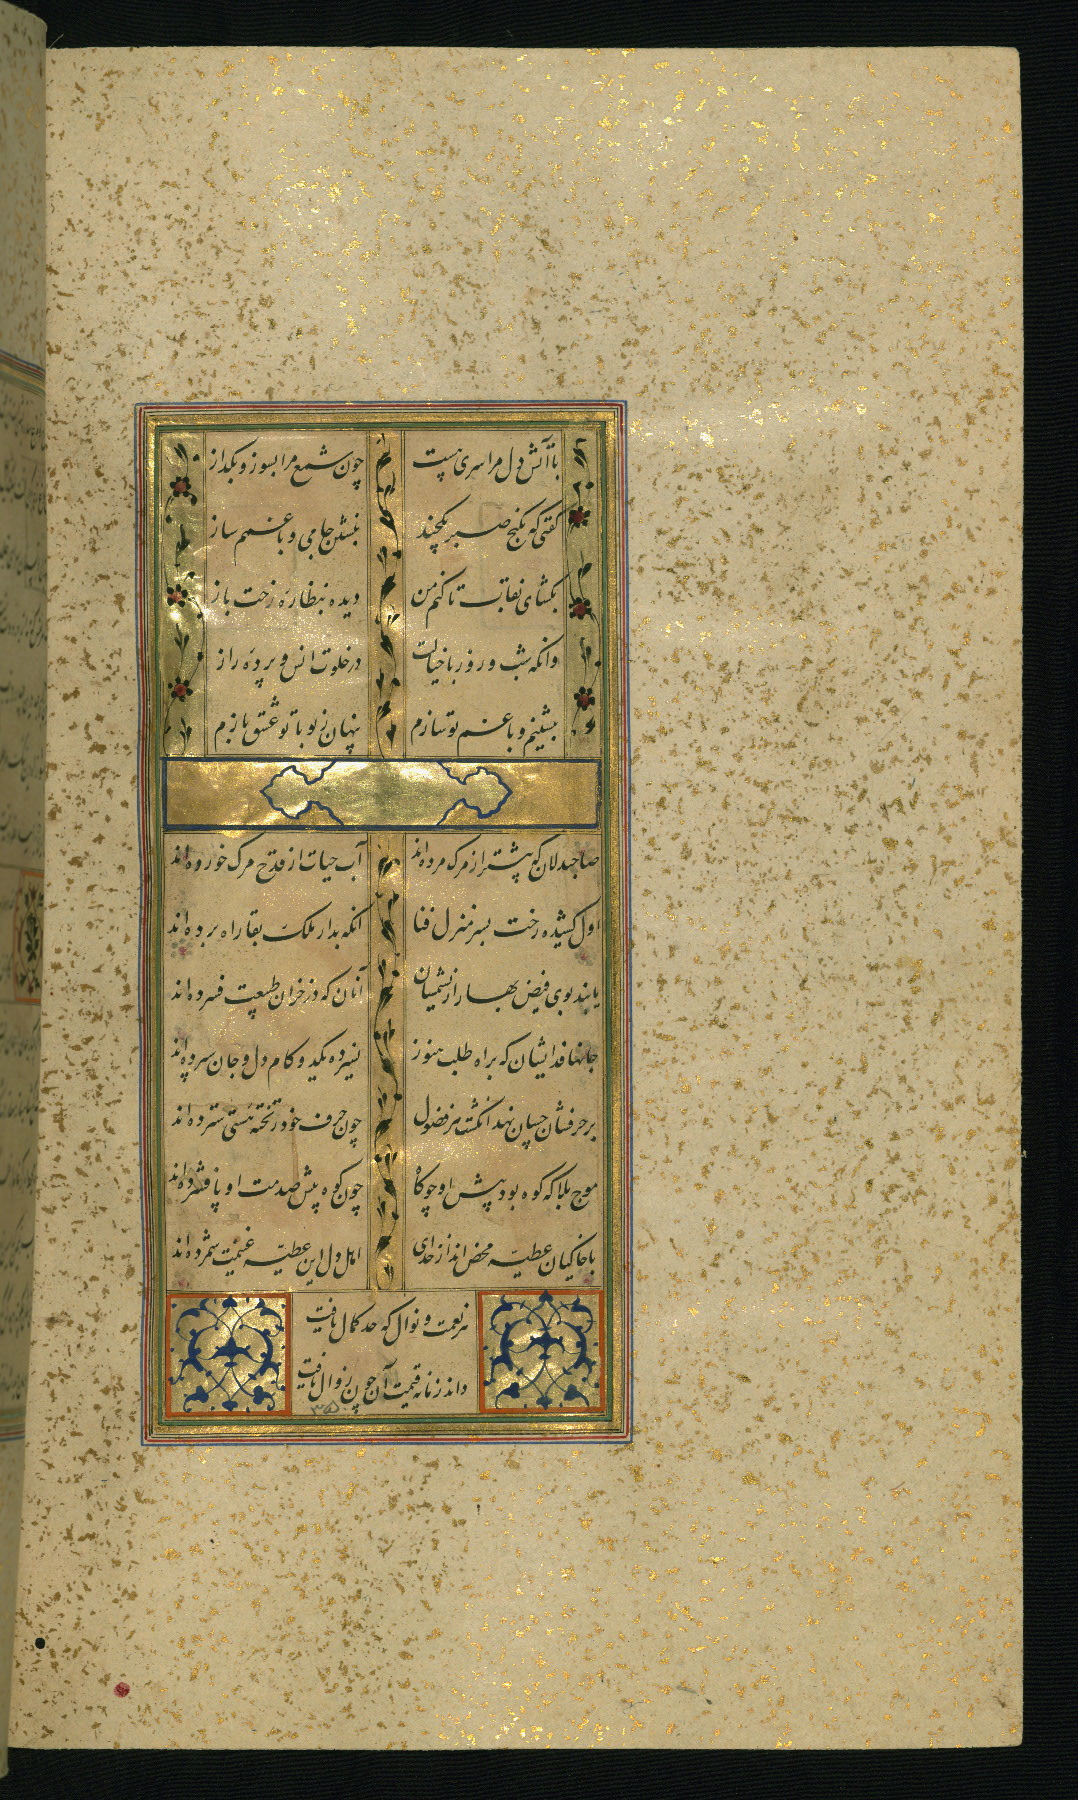 با آتش دل مرا سری هست
چون شمع مرا بسوز و بگداز
گفتی که بکنج صبر یکچند
بنشین جامی و با غمم ساز
بگشای نقابت تا کنم من
دیده بنظاره رخت باز
وانگه شب و روز با خیالت
در خلوت انس و پرده راز
بنشینم و با غم تو سازم
پنهان ز تو با تو عشق بازم
صاحبدلان که پیشتر از مرگ مرده‌اند
آب حیات از قدح مرگ خورده‌اند
اول کشیده رخت بسر منزل فنا
آنگه بدار ملک بقا راه برده‌اند
یابند بوی فیض بهار از نسیمشان
آنان که در خزان طبیعت فسرده‌اند
جانها فدایشان که براه طلب هنوز
نسپرده یکدو گام دل و جان سپرده‌اند
بر حرفشان چسان نهد انگشت هر فضول
چون حرف خود ز تخته هستی سترده‌اند
موج بلا که کوه بود پیش او چو کاه
چون کوه پیش صدمت او پا فشرده‌اند
با خاکیان عطیه محض‌اند از خدای
اهل دل این عطیه غنیمت شمرده‌اند
هر نعمت و نوال که حد کمال یافت
داند زمانه قیمت آن چون زوال یافت